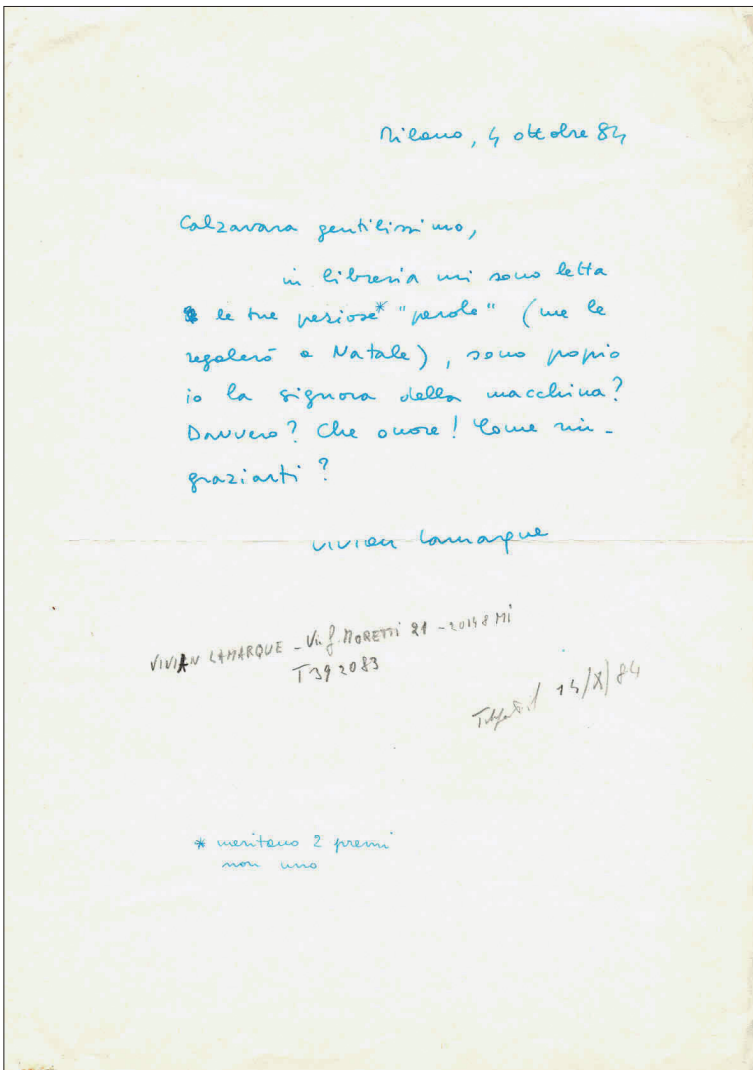 Milano, 4 ottobre 84
Calzavara gentilissimo,
in libreria mi sono letta
le tue preziose* "parole" (me le
regalerò a Natale), sono proprio
io la signora della macchina?
Davvero? Che onore! Come rin-
graziarti?
Vivian Lamarque
VIVIAN LAMARQUE - Via G. MORETTI 21 - 20148 MI
T 392083
14/X/84
* meritano 2 premi
non uno